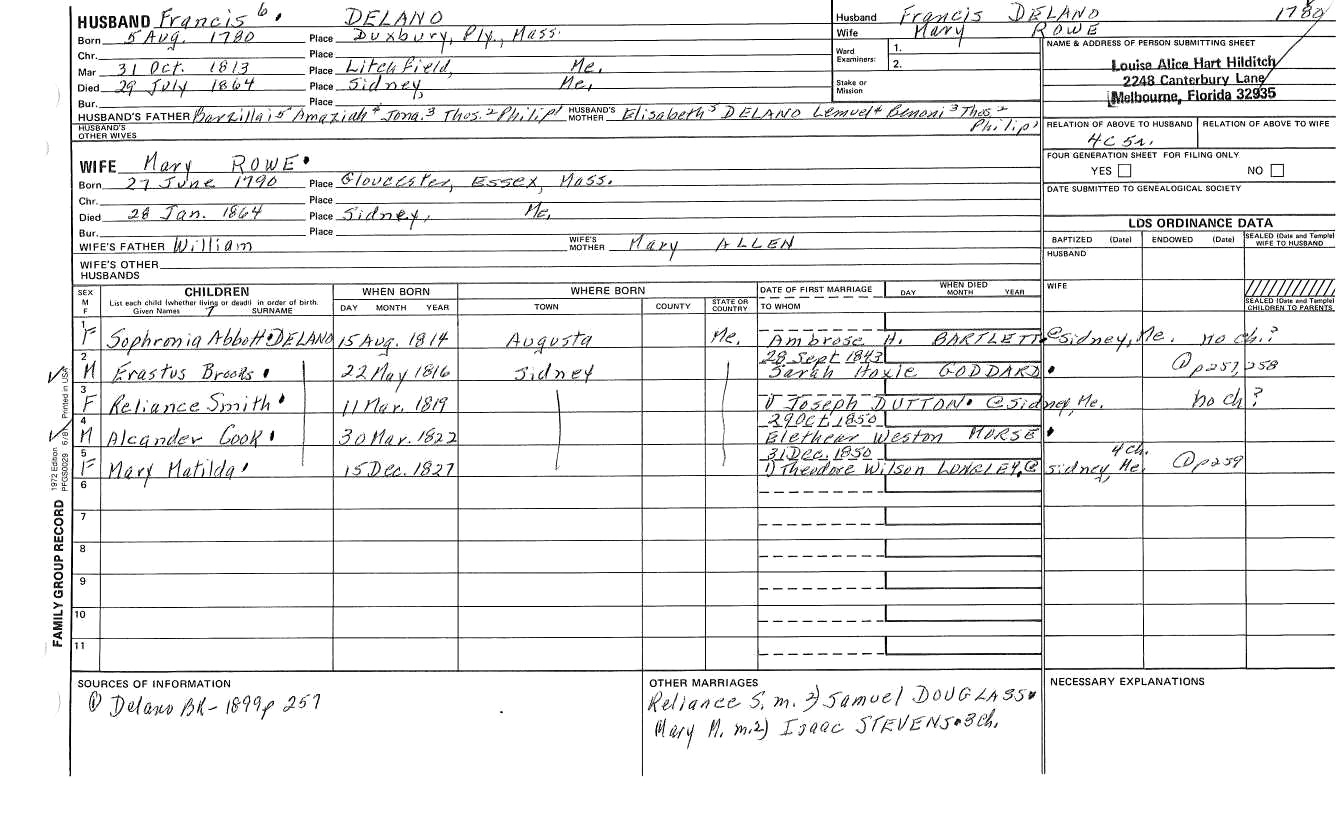 HUSBAND Francis 6 DELANO
Born 5 Aug. 1780 Place Duxbury, Ply, Mass.
Chr. Place
Mar 31 Oct. 1813 Place Litchfield, Me.
Died 29 July 1864 Place Sidney, Me,
Bur. Place
HUSBAND'S FATHER Barzillai 5 Amaziah 4 Jona. 3 Thos. 2 Philip 1 HUSBAND'S MOTHER Elisabeth 5 DELANO Lemuel 4 Benoni 3 Thos 2 Philip 1
HUSBAND'S OTHER WIVES
WIFE Mary ROWE
Born 27 June 1790 Place Gloucester, Essex, Mass.
Chr. Place
Died 28 Jan. 1864 Place Sidney, Me,
Bur. Place
WIFE'S FATHER William WIFE'S MOTHER Mary ALLEN
WIFE'S OTHER HUSBANDS
Husband Francis DELANO 1780
Wife Mary ROWE
Ward Examiners: 1.
2.
Stake or Mission
NAME & ADDRESS OF PERSON SUBMITTING SHEET
Louise Alice Hart Hilditch
2248 Canterbury Lane
Melbourne, Florida 32935
RELATION OF ABOVE TO HUSBAND RELATION OF ABOVE TO WIFE
4C 5r.
FOUR GENERATION SHEET FOR FILING ONLY
YES NO
DATE SUBMITTED TO GENEALOGICAL SOCIETY
LDS ORDINANCE DATA
BAPTIZED (Date) ENDOWED (Date) SEALED (Date and Temple) WIFE TO HUSBAND
HUSBAND
WIFE
SEALED (Date and Temple) CHILDREN TO PARENTS
SEX M F CHILDREN WHEN BORN WHERE BORN DATE OF FIRST MARRIAGE WHEN DIED
List each child (whether living or dead) in order of birth. Given Names SURNAME DAY MONTH YEAR TOWN COUNTY STATE OR COUNTRY TO WHOM DAY MONTH YEAR
1 F Sophronia Abbott DELANO 15 Aug. 1814 Augusta Me. Ambrose H. BARTLETT @Sidney, Me. no ch.?
2 M Erastus Brooks 22 May 1816 Sidney 28 Sept 1843 Sarah Hoxie GODDARD @p257, 258
3 F Reliance Smith 11 Mar. 1819 1) Joseph DUTTON @Sidney, Me. no ch?
4 M Alcander Cook 30 Mar. 1822 29 Oct 1850 Elethear Weston MORSE
5 F Mary Matilda 15 Dec. 1827 31 Dec. 1850 1) Theodore Wilson LONGLEY, @ Sidney, Me. 4 ch. @p259
6
7
8
9
10
11
FAMILY GROUP RECORD 1972 Edition 6/8 Printed in USA PFGS0029
SOURCES OF INFORMATION
① Delano BK- 1899 p 257
OTHER MARRIAGES
Reliance S. m. 2) Samuel DOUGLASS
Mary M. m. 2) Isaac STEVENS 3ch.
NECESSARY EXPLANATIONS